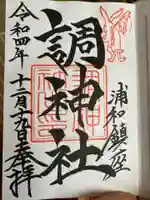 浦和鎮座
調神社
令和四年
十二月九日奉拝